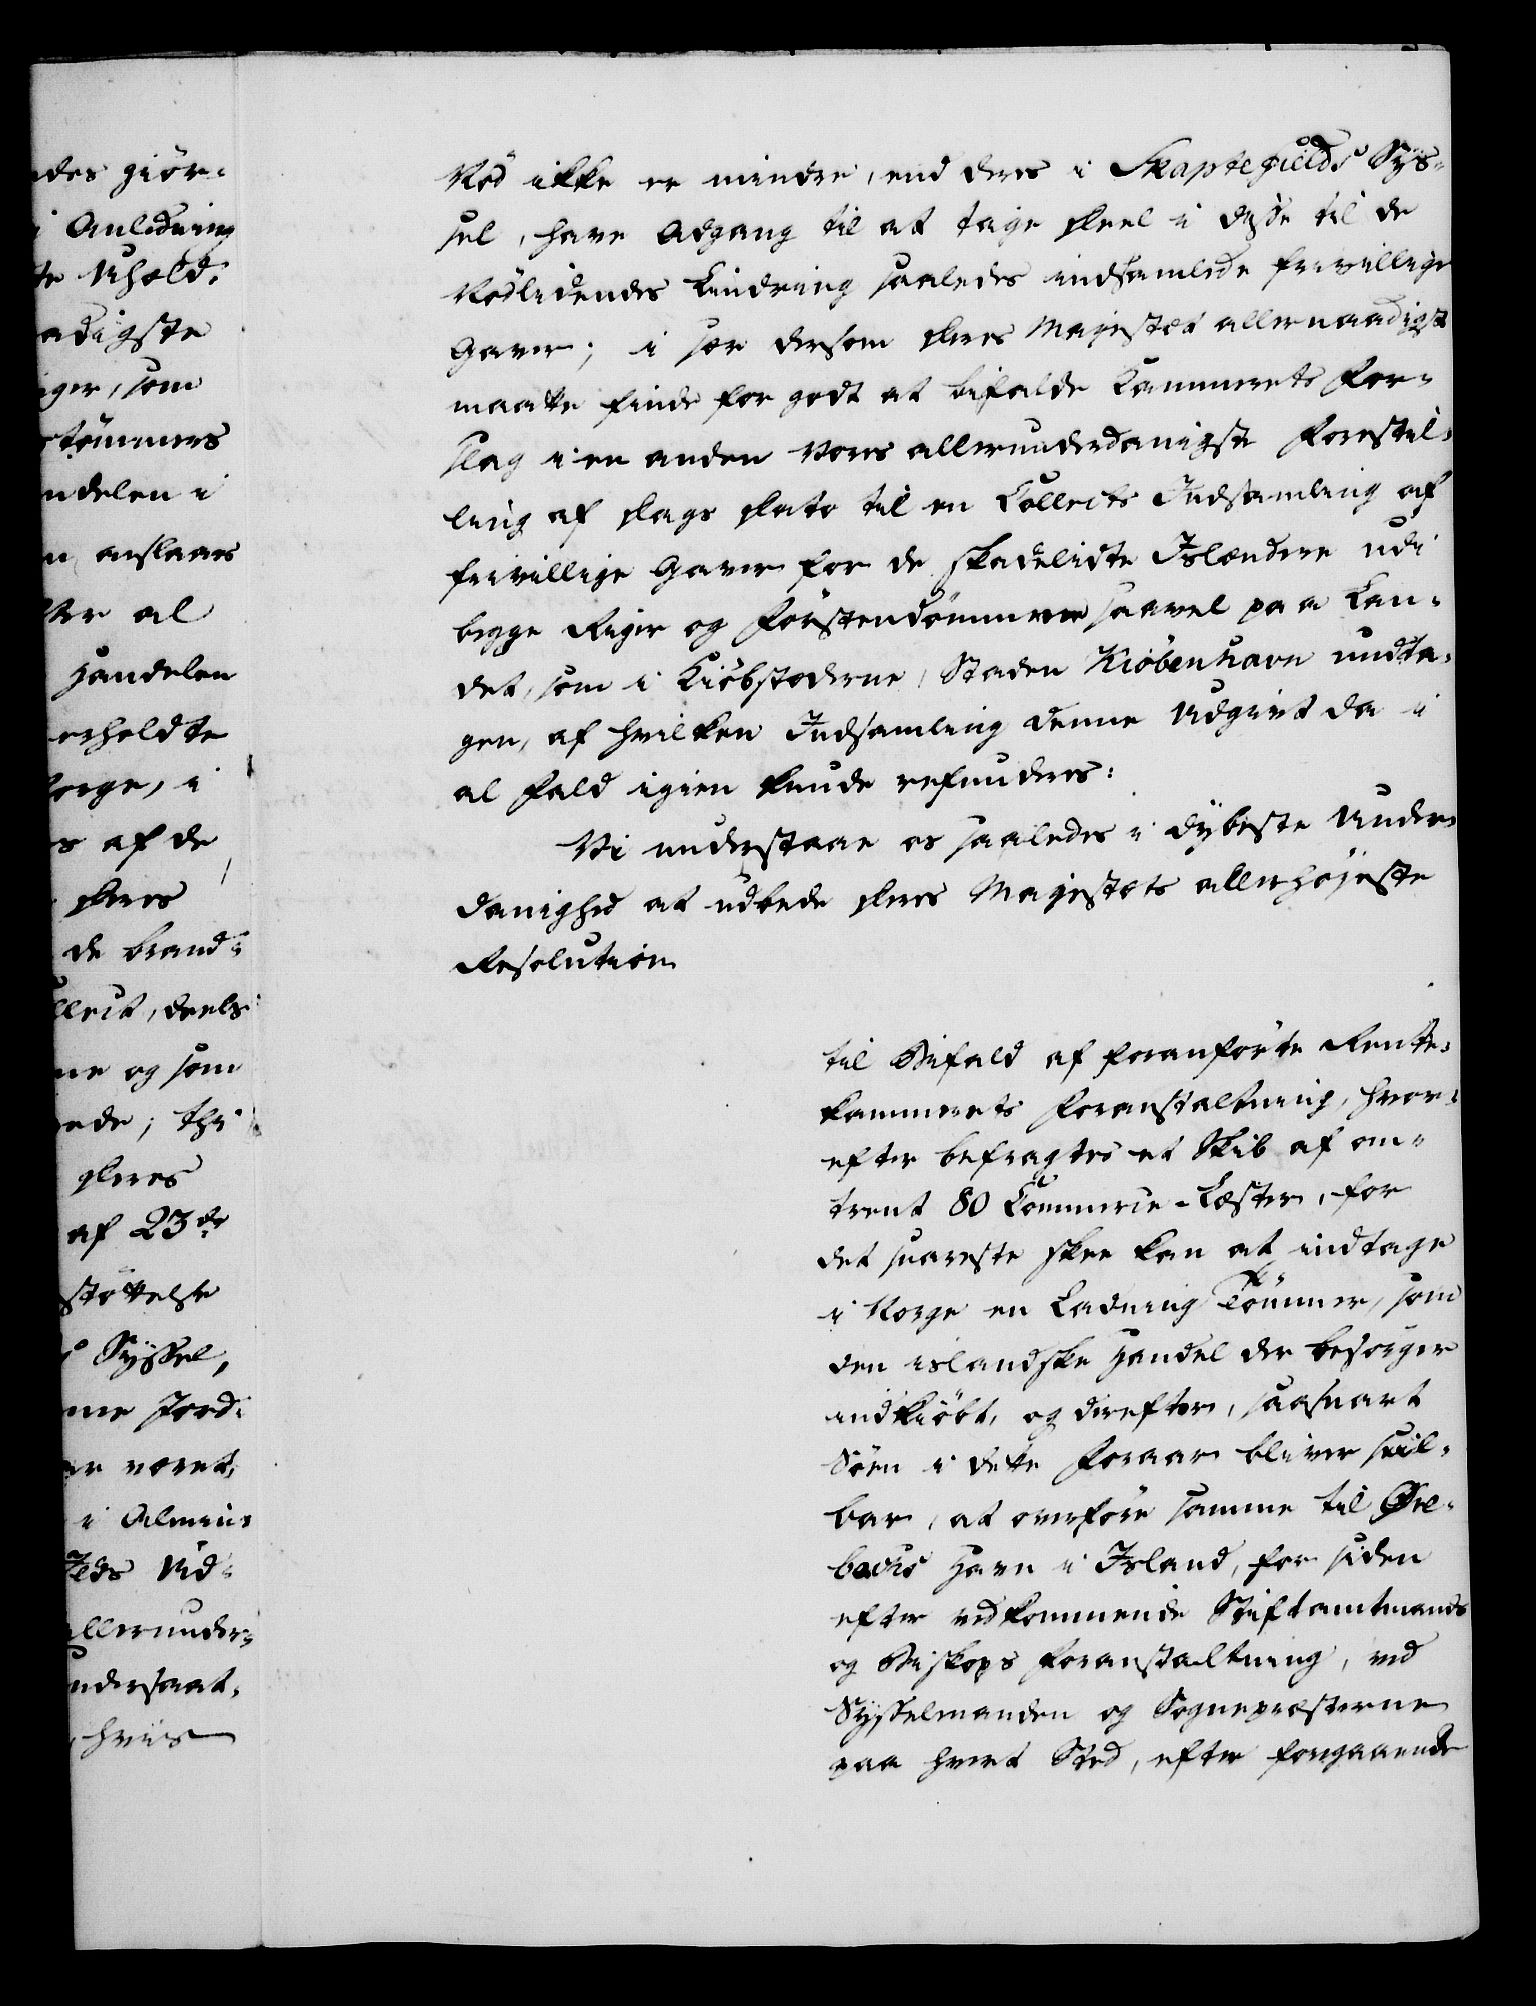 ndes giör-
i Anledning
te Uheld.
adigste
iger, som
tömmers
ndelen i
n anslaaes
er al
Handelen
erholdte
orge, i
s af de
Deres
de brand-
llect, deels
ne og som
ede; thi
Deres
af 23de
støttelse
s Syssel,
me Jord-
er været,
i Almin-
Ieds Ud-
allerunder-
ndersaat-
hviis
Nød ikke er mindre, end deres i Skaptefields Sys-
sel, have Adgang til at tage Deel i disse til de
Nødlidendes Lindring saaledes indsamlede frivillige
Gaver; i sær dersom Deres Majestæt allernaadigst
maatte finde for godt at bifalde Kammerets For-
slag i en anden vores allerunderdanigste Forestil-
ling af Dags Dato til en Collects Indsamling af
frivillige Gaver for de skadelidte Islændere udi
begge Riger og Förstendömmene saavel paa Lan-
det, som i Kiöbstæderne, Staden Kiöbenhavn undta-
gen, af hvilken Indsamling denne Udgivt da i
al Fald igien kunde refunderes:
Vi understaae os saaledes i dybeste Under-
danighed at udbede Deres Majestæts allerhøjeste
Resolution
til Bifald af foranförte Rente-
kammerets Foranstaltning, hvor-
efter befragtes et Skib af om-
trent 80 Commerce-Læster, for
det snareste skee kan at indtage
i Norge en Ladning Tömmer, som
den islandske Handel der besörger
indkiöbt, og derefter, saasnart
Söen i dette Foraar bliver seil-
bar, at overföre samme til Øre-
backs Havn i Island, for siden
efter vedkommende Stiftamtmands
og Biskops Foranstaltning, ved
Sysselmanden og Sognepræsterne
paa hvert Sted, efter foregaaende